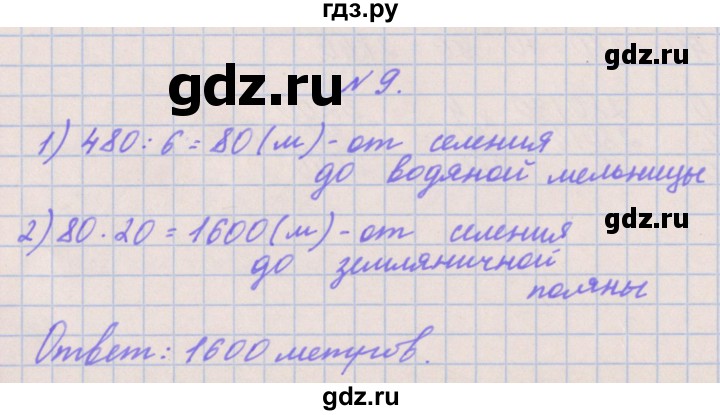 гдз.ру
gdz.ru
gdz.ru
№ 9.
1) 480 : 6 = 80 (м) - от селения
до водяной мельницы
gdz.ru
2) 80 · 20 = 1600 (м) - от селения
до земляничной
поляны
Ответ: 1600 метров.
gdz.ru